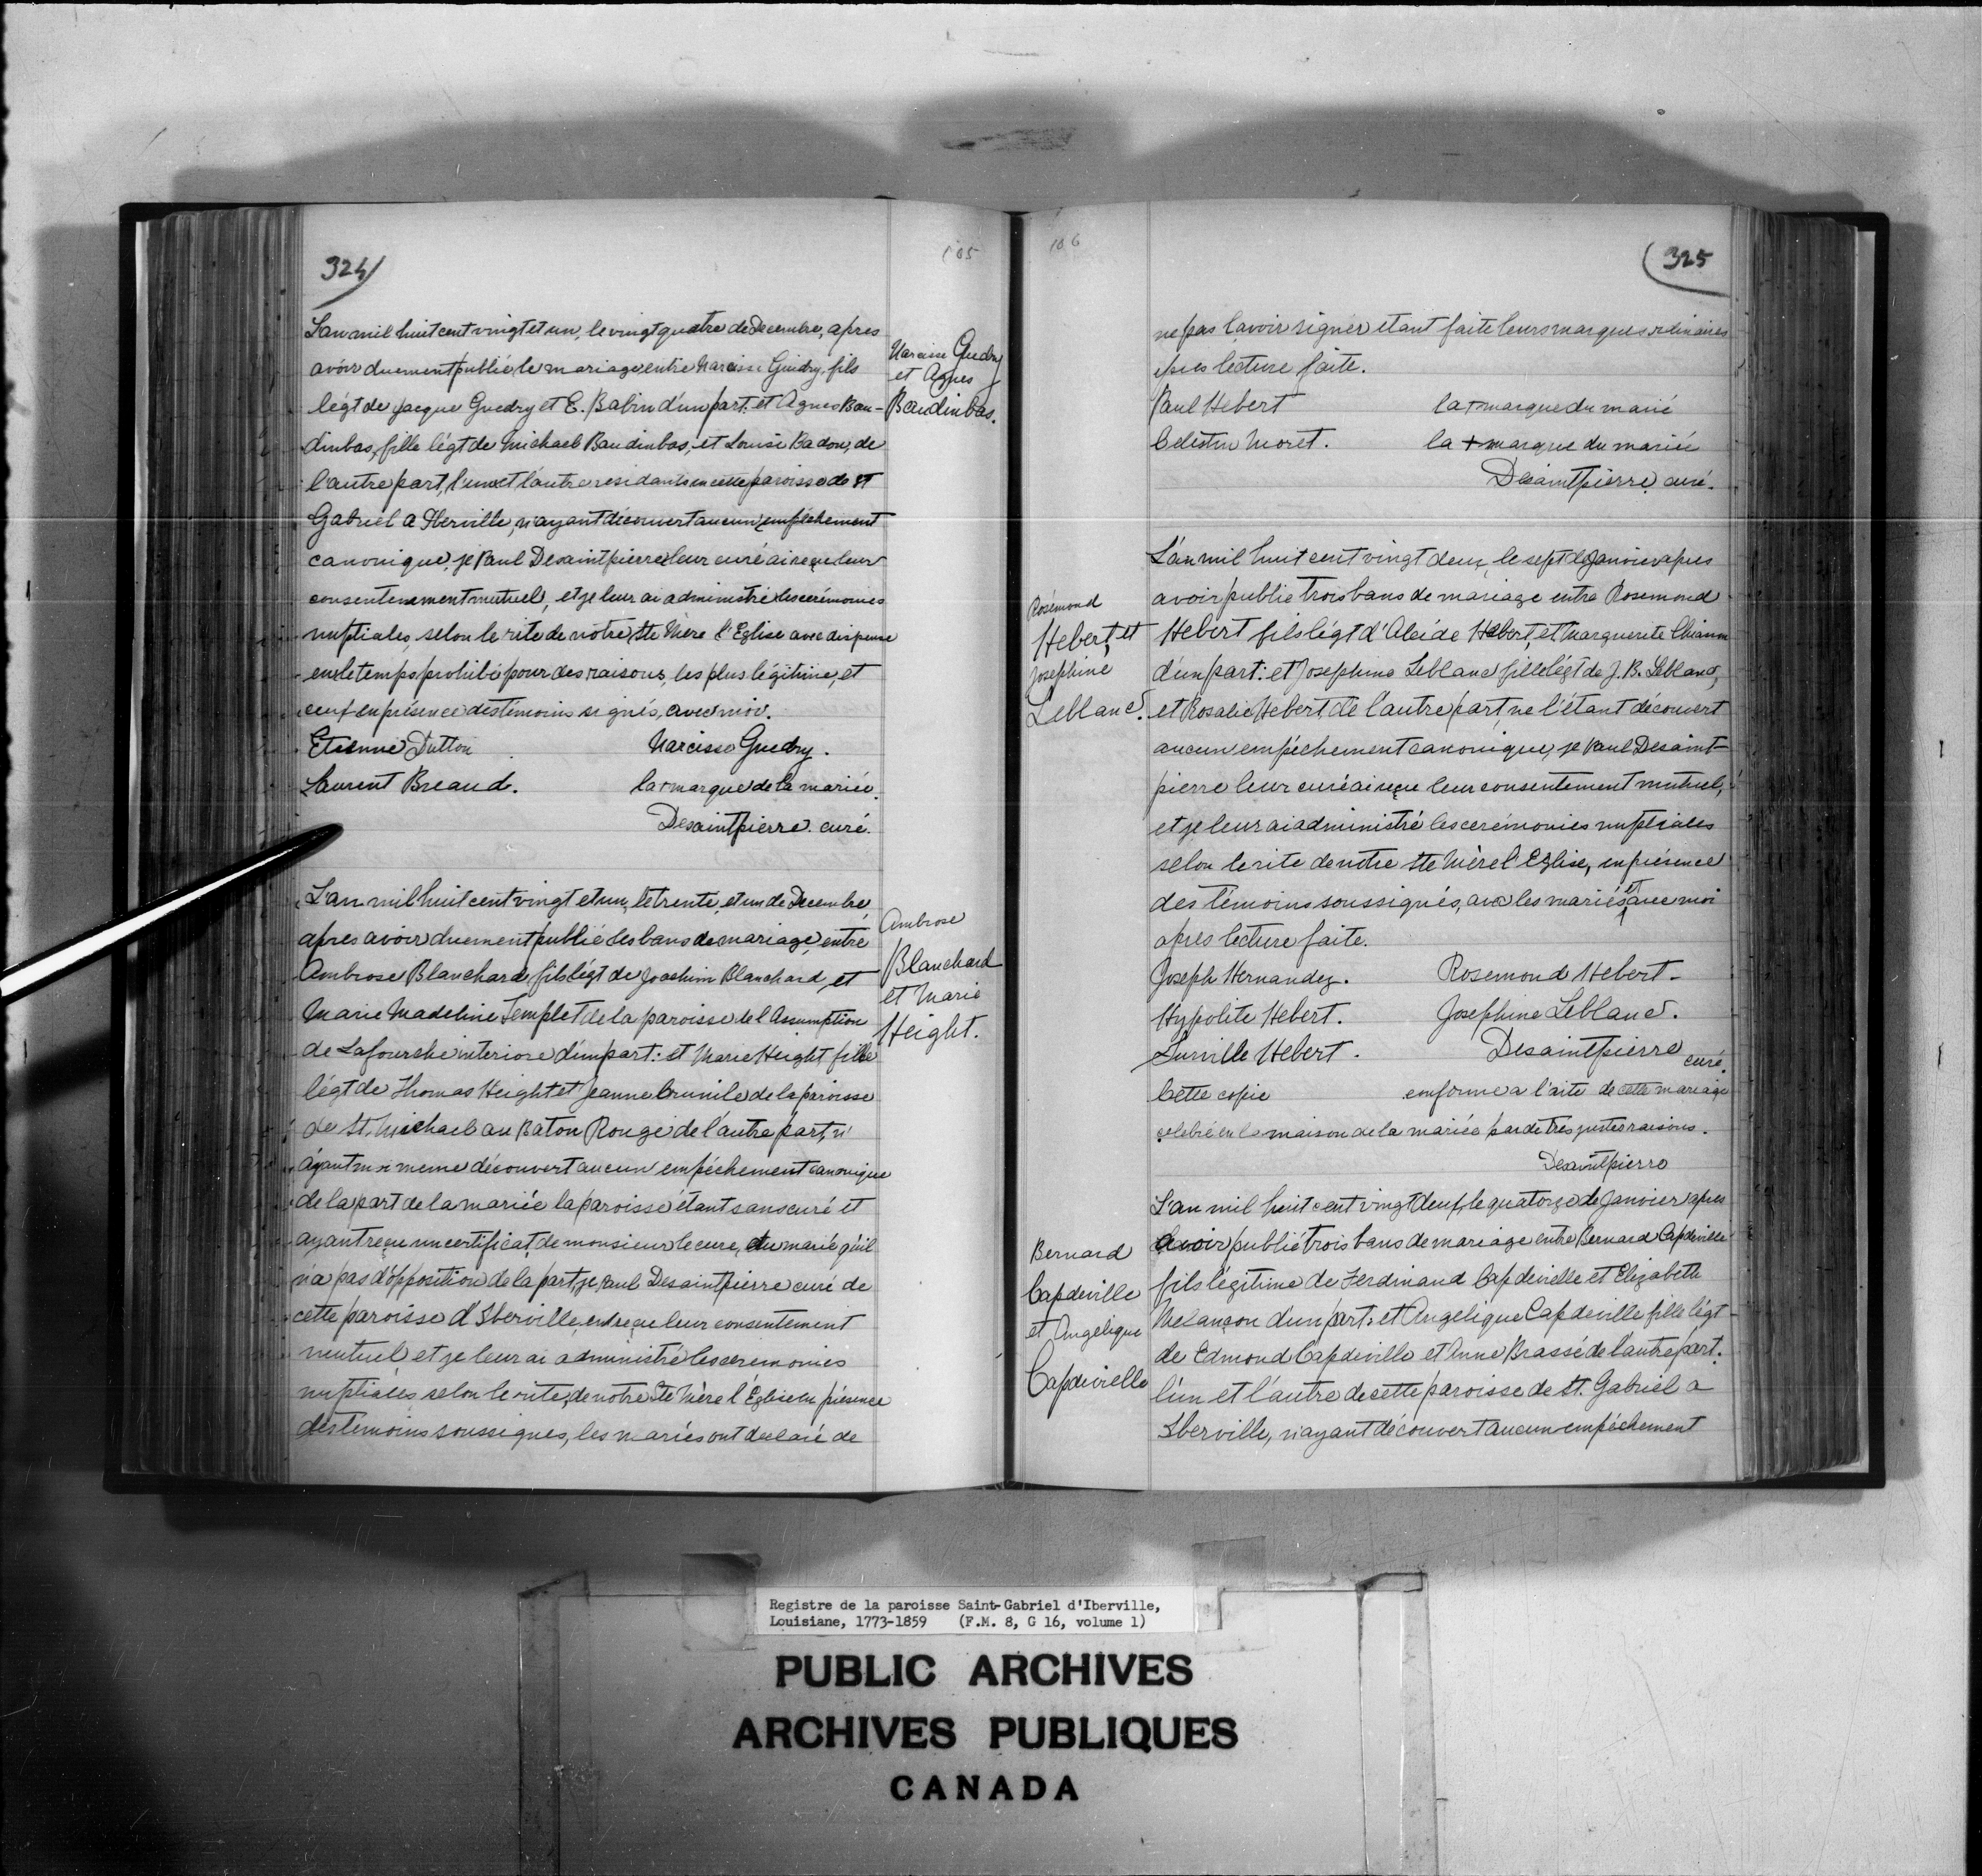 324
105
L'an mil huit cent vingt et un, le vingt quatre de Decembre, apres
avoir duement publié le mariage entre Narcisse Guidry, fils
légt de Jacque Guedry et E. Babin d'un part: et Agnes Bau-
dinbas, fille légt de Michael Baudinbas, et Louise Badon, de
l'autre part, l'un et l'autre residants en cette paroisse de St
Gabriel a Iberville, n'ayant découvert aucun empêchement
canonique, je Paul Desaintpierre leur curé ai reçu leur
consentement mutuel, et je leur ai administré les cerémonies
nuptiales, selon le rite de notre Ste Mere l'Eglise avec dispense
en le temps prohibé pour des raisons, les plus légitime, et
ceuf en présence des témoins signés, avec moi.
Etienne Dutton Narcisse Guedry.
Laurent Breaud. la + marque de la mariée.
Desaintpierre curé.
Narcisse Guedry
et Agnes
Baudinbas.
L'an mil huit cent vingt et un, le trente et un de Decembre
apres avoir duement publié les bans de mariage, entre
Ambrose Blanchard fils légt de Joachim Blanchard, et
Marie Madeline Templet de la paroisse de l'Assumption
de Lafourche interiore d'un part: et Marie Height fille
légt de Thomas Height et Jeanne Brunile de la paroisse
de St. Michael au Baton Rouge de l'autre part, n'
ayant moi meme découvert aucun empéchement canonique
de la part de la mariée la paroisse étant sans curé et
ayant reçu un certificat, de monsieur le cure, du marié qu'il
n'a pas d'opposition de la part, je Paul Desaintpierre curé de
cette paroisse d'Iberville, en reçu leur consentement
mutuel et je leur ai administré les ceremonies
nuptiales, selon le rite, de notre Ste Mère l'Église en présence
des temoins soussignes, les mariés ont declaré de
Ambrose
Blanchard
et Marie
Height.
106
325
ne pas savoir signer etant faite leurs marques ordinaires
apres lecture faite.
Paul Hebert la + marque du marié
Celestin Moret. la + marque du mariée
Desaintpierre, curé.
Rosémond
Hebert, et
Josephine
Leblanc.
L'an mil huit cent vingt deux, le sept de Janvier apres
avoir publié trois bans de mariage entre Rosemond
Hebert fils légt d'Alcide Hebert, et Marguerite
d'un part: et Josephine Leblanc fille légt de J. B. Leblanc,
et Rosalie Hebert, de l'autre part, ne l'étant découvert
aucun empéchement canonique, je Paul Desaint-
pierre leur curé ai reçu leur consentement mutuel,
et je leur ai administré les cerémonies nuptiales
selon le rite de notre Ste Mère l'Eglise, en présence
des témoins soussignés, avec les mariés, et avec moi
apres lecture faite.
Joseph Hernandez. Rosemond Hebert.
Hypolite Hebert. Josephine Leblanc.
Surville Hebert. Desaintpierre curé.
Cette copie conforme a l'acte de cette mariage
celebré en la maison de la mariée par de tres justes raisons.
Desaintpierre
Bernard
Capdeville
et Angelique
Capdevielle
L'an mil huit cent vingt deux, le quatorze de Janvier apres
avoir publié trois bans de mariage entre Bernard Capdeville
fils légitime de Ferdinand Capdevielle et Elizabeth
Melançon d'un part: et Angelique Capdeville fille légt
de Edmond Capdeville et Anne Brassé de l'autre part.
l'un et l'autre de cette paroisse de St. Gabriel a
Iberville, n'ayant découvert aucun empéchement
Registre de la paroisse Saint-Gabriel d'Iberville,
Louisiane, 1773-1859 (F.M. 8, G 16, volume 1)
PUBLIC ARCHIVES
ARCHIVES PUBLIQUES
CANADA